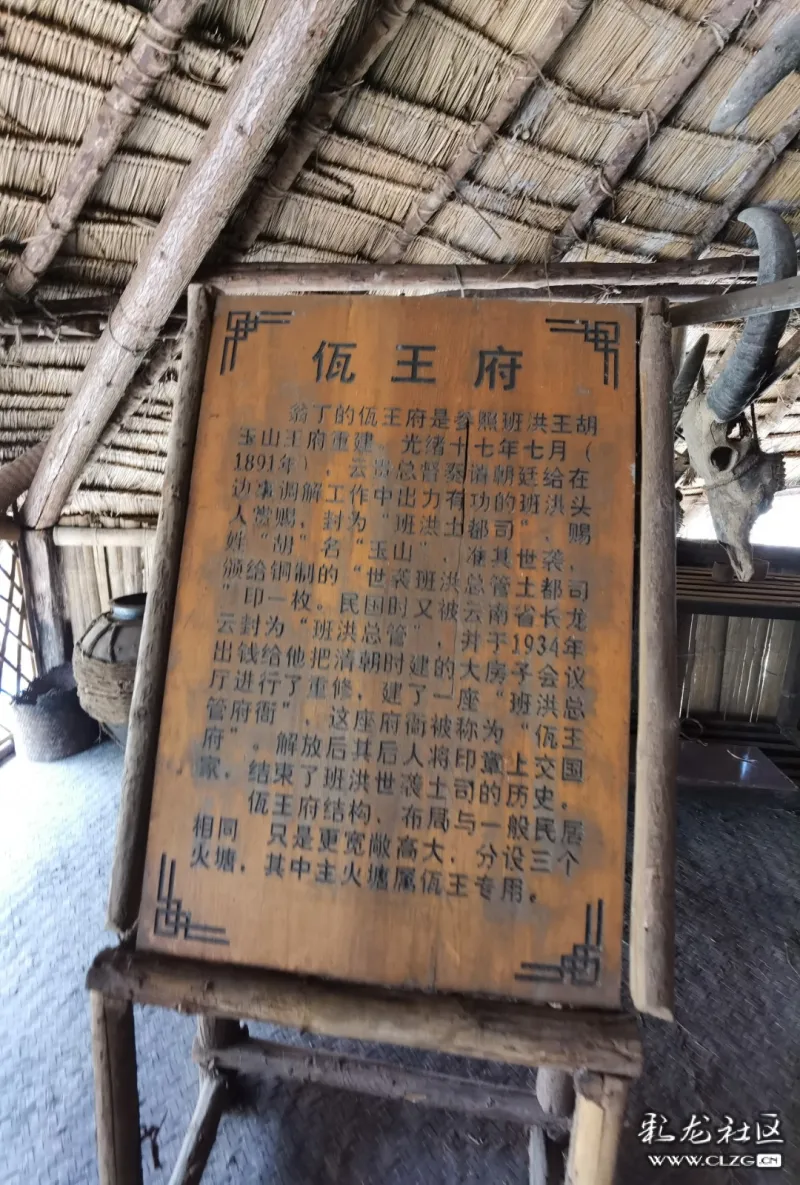 佤王府
翁丁的佤王府是参照班洪王胡
玉山王府重建。光绪十七年七月（
1891年），云贵总督奏请朝廷给在
边事调解工作中出力有功的班洪头
人赏赐，封为“班洪土都司”，赐
姓“胡”名“玉山”，准其世袭，
颁给铜制的“世袭班洪总管土都司
”印一枚。民国时又被云南省长龙
云封为“班洪总管”，并于1934年
出钱给他把清朝时建的大房子会议
厅进行了重修，建了一座“班洪总
管府衙”，这座府衙被称为“佤王
府”。解放后其后人将印章上交国
家，结束了班洪世袭土司的历史。
佤王府结构、布局与一般民居
相同 只是更宽敞高大，分设三个
火塘，其中主火塘属佤王专用。
彩龙社区
www.CLZG.CN